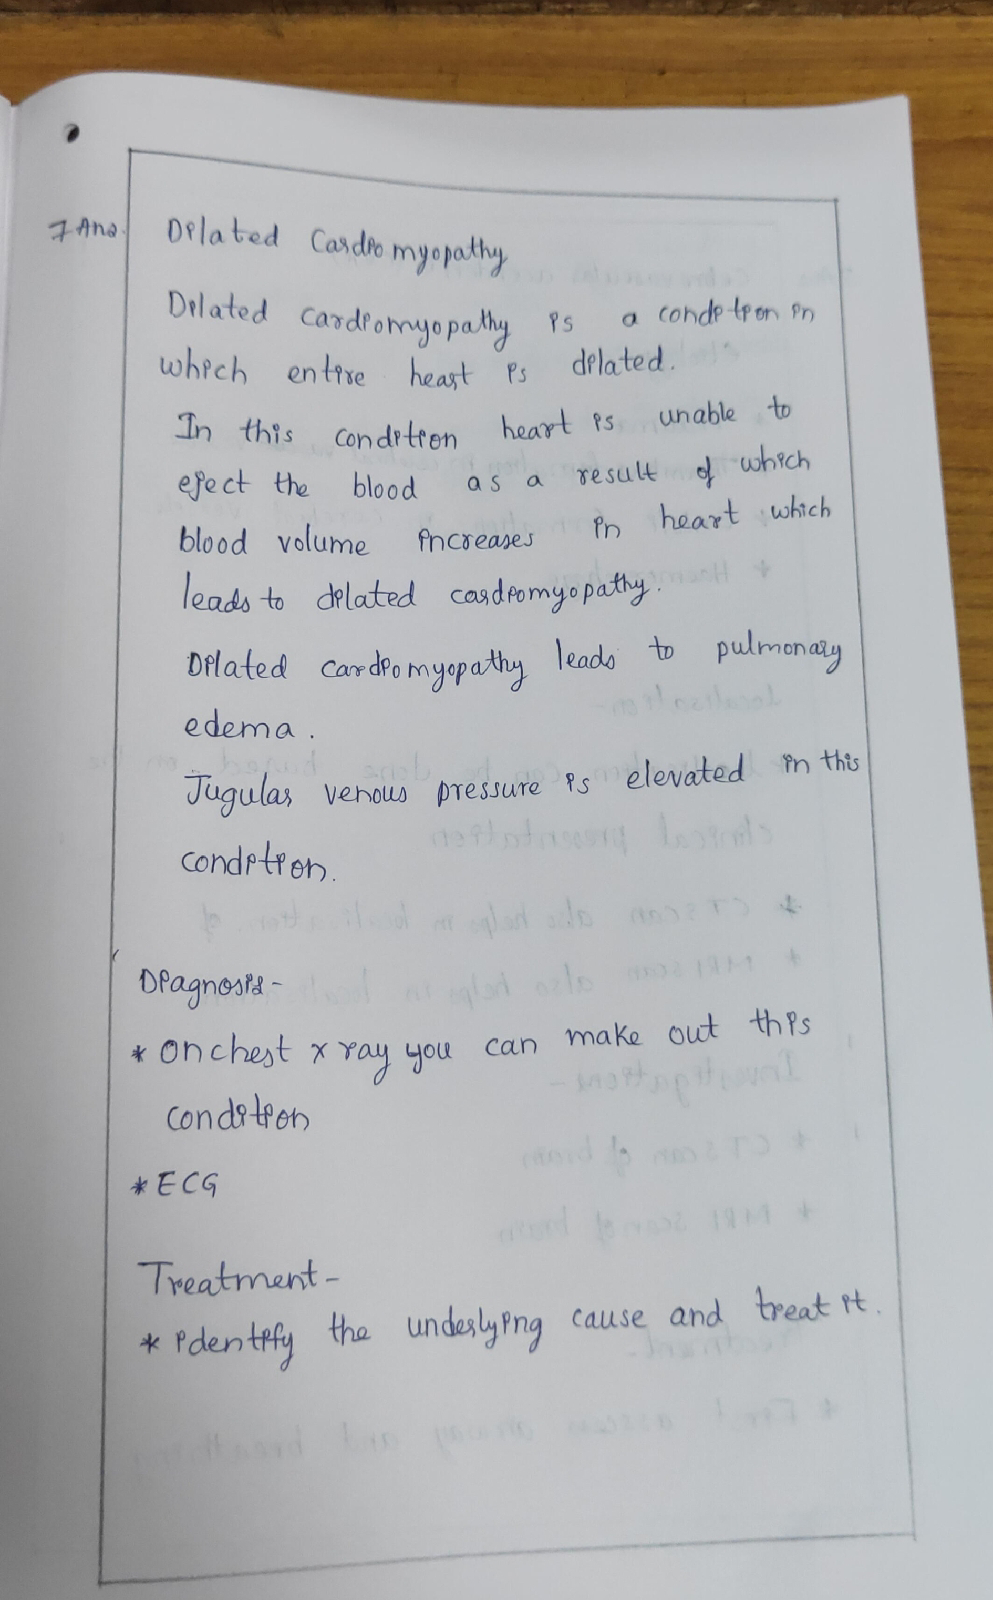 7 Ans.
Dilated Cardiomyopathy
Dilated cardiomyopathy is a condition in
which entire heart is dilated.
In this condition heart is unable to
eject the blood as a result of which
blood volume increases in heart which
leads to dilated cardiomyopathy.
Dilated cardiomyopathy leads to pulmonary
edema.
Jugular venous pressure is elevated in this
condition.
Diagnosis-
* On chest x ray you can make out this
condition
* ECG
Treatment-
* identify the underlying cause and treat it.